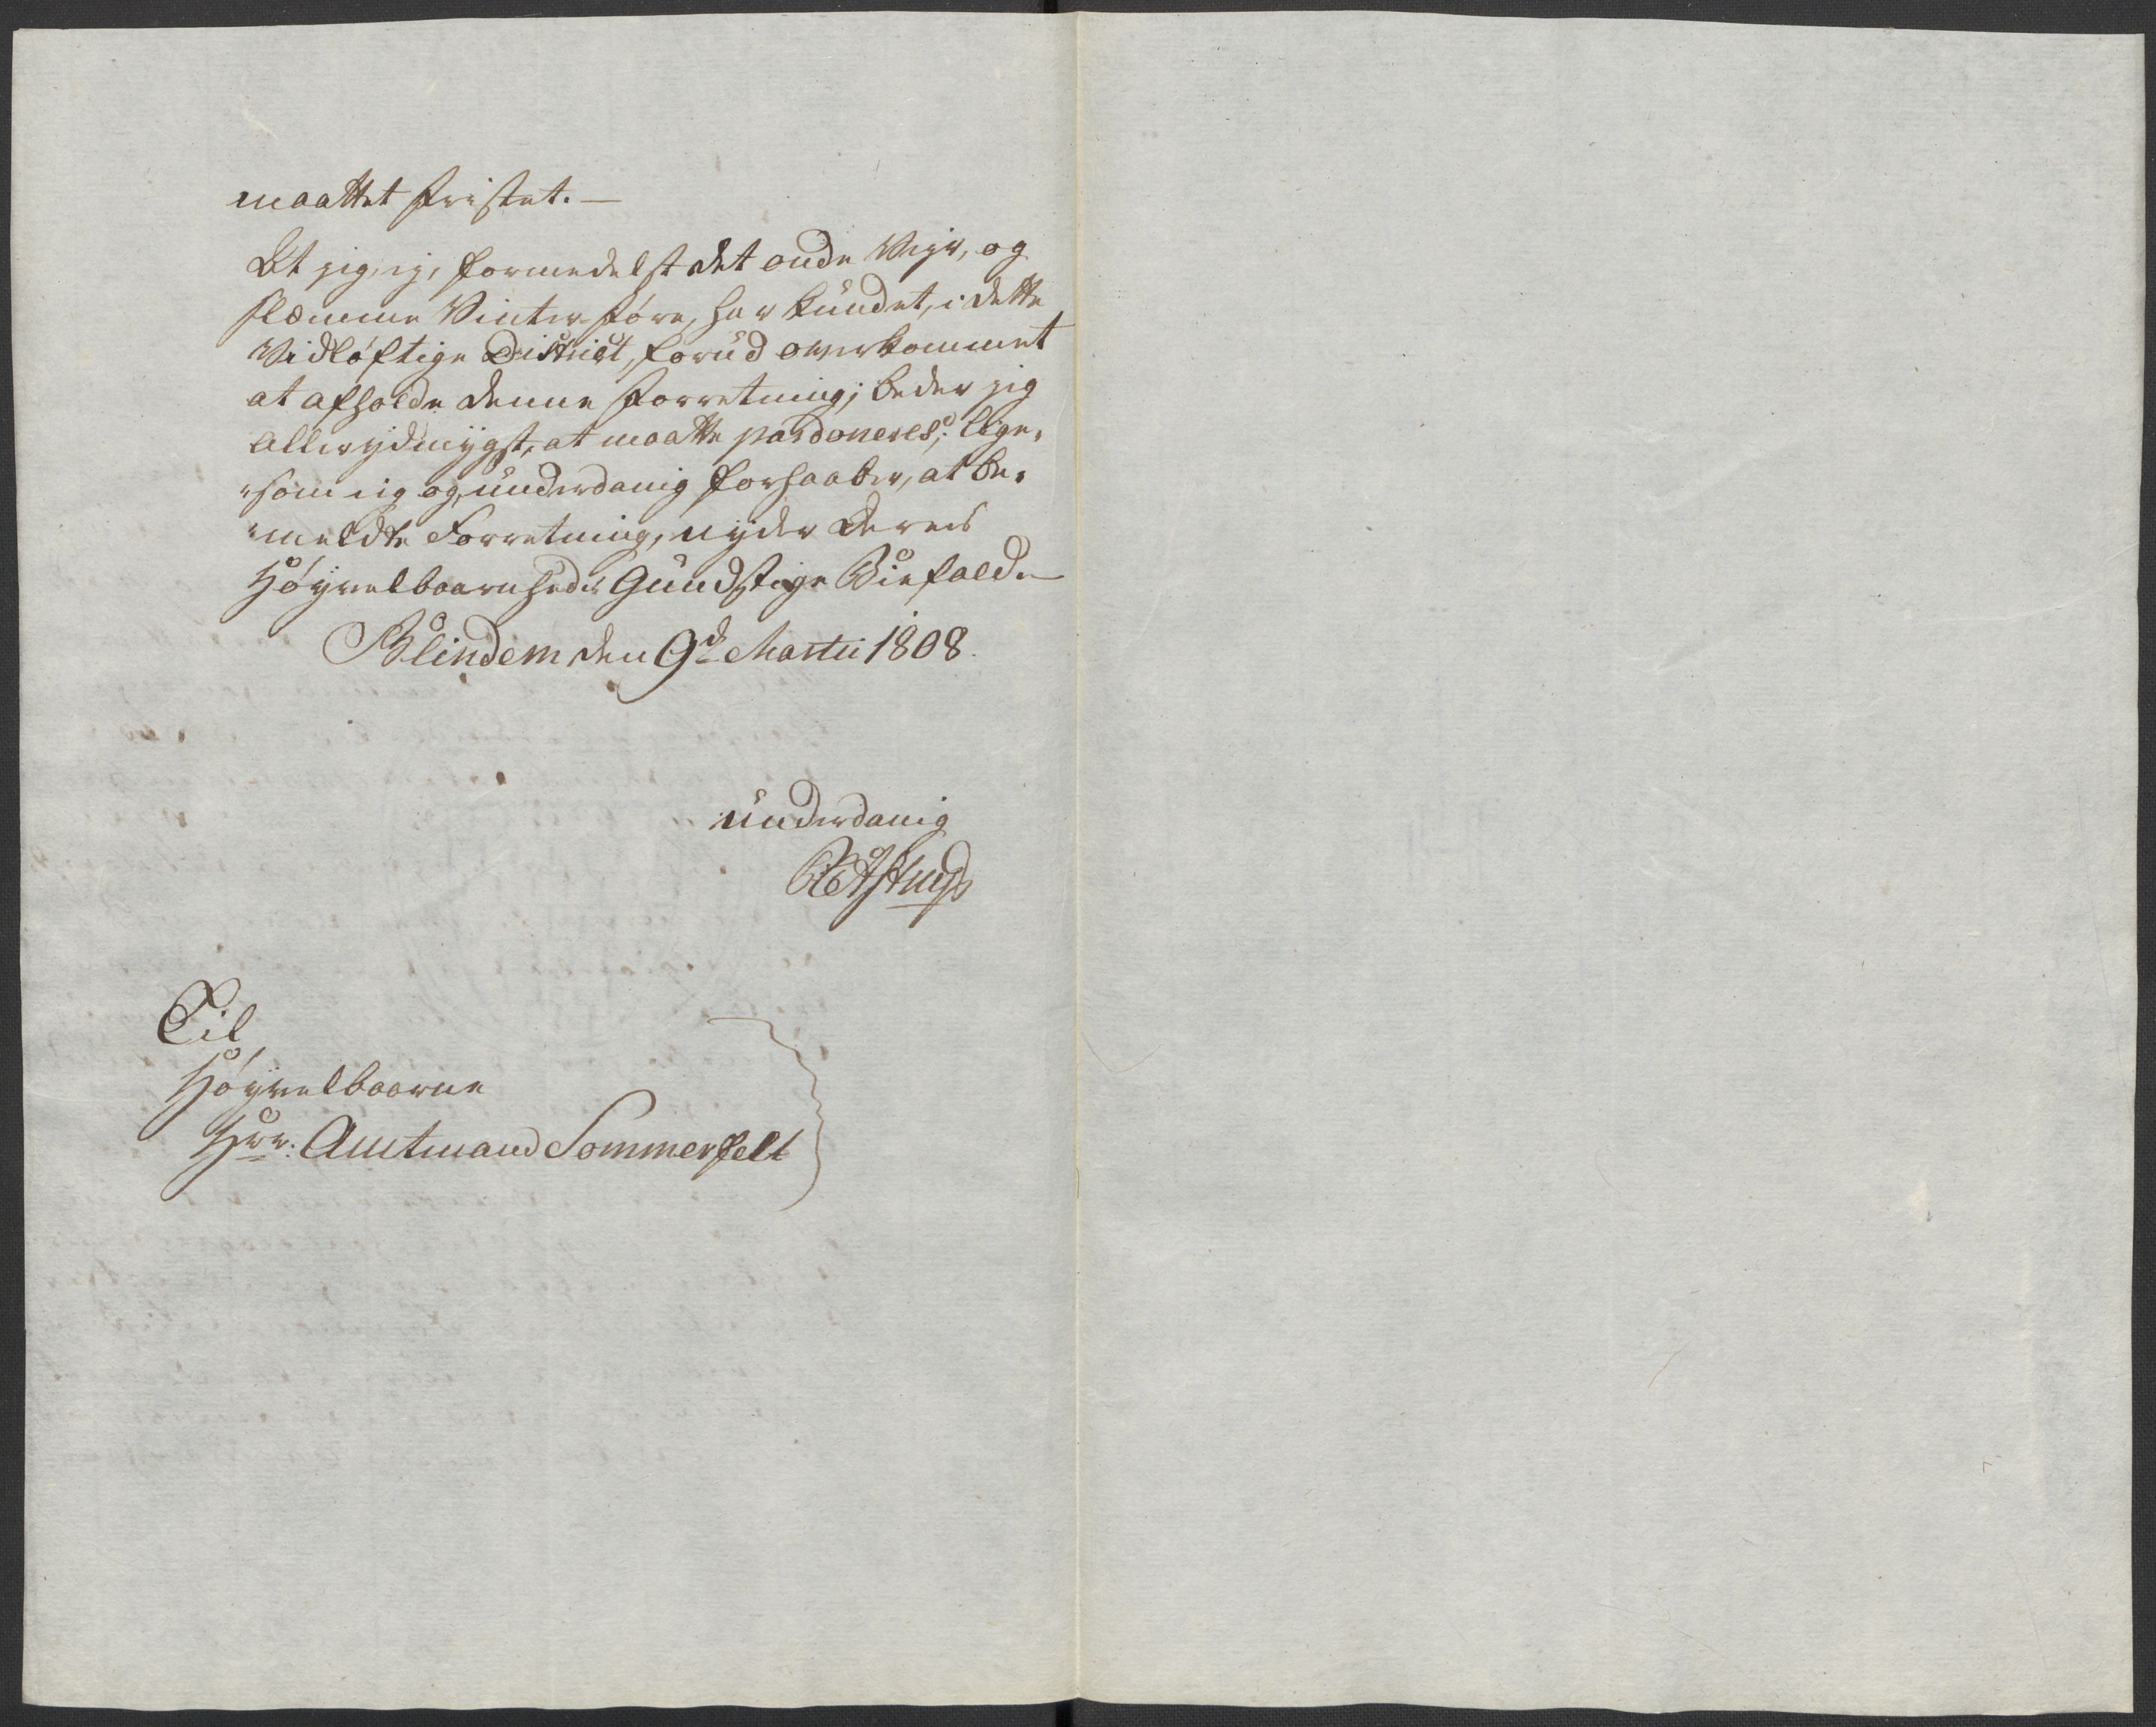 maattet fristet. —
At jeg, ej, formedelst det onde Vejr, og
slemme Vinter-Føre, har kundet, i dette
Vidløftige District, forud overkommet
at afholde denne Forretning; beder jeg
allerydmygst, at maatte pardoneres; lige-
"som jeg og, underdanig forhaaber, at be-
"meldte Forretning, nyder Deres
Høyvelbaarenheds Gundstige Biefald. —
Blindem den 9d Martii 1808.
underdanig
Til
Høyvelbaarne
Hrr. Amtmand Sommerfelt